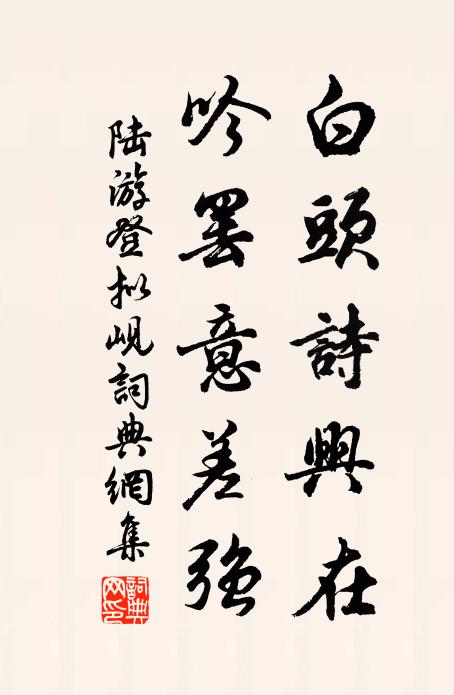 白頭詩興在
吟罷意差強
陸游登拟峴詞典網集
詞典网印